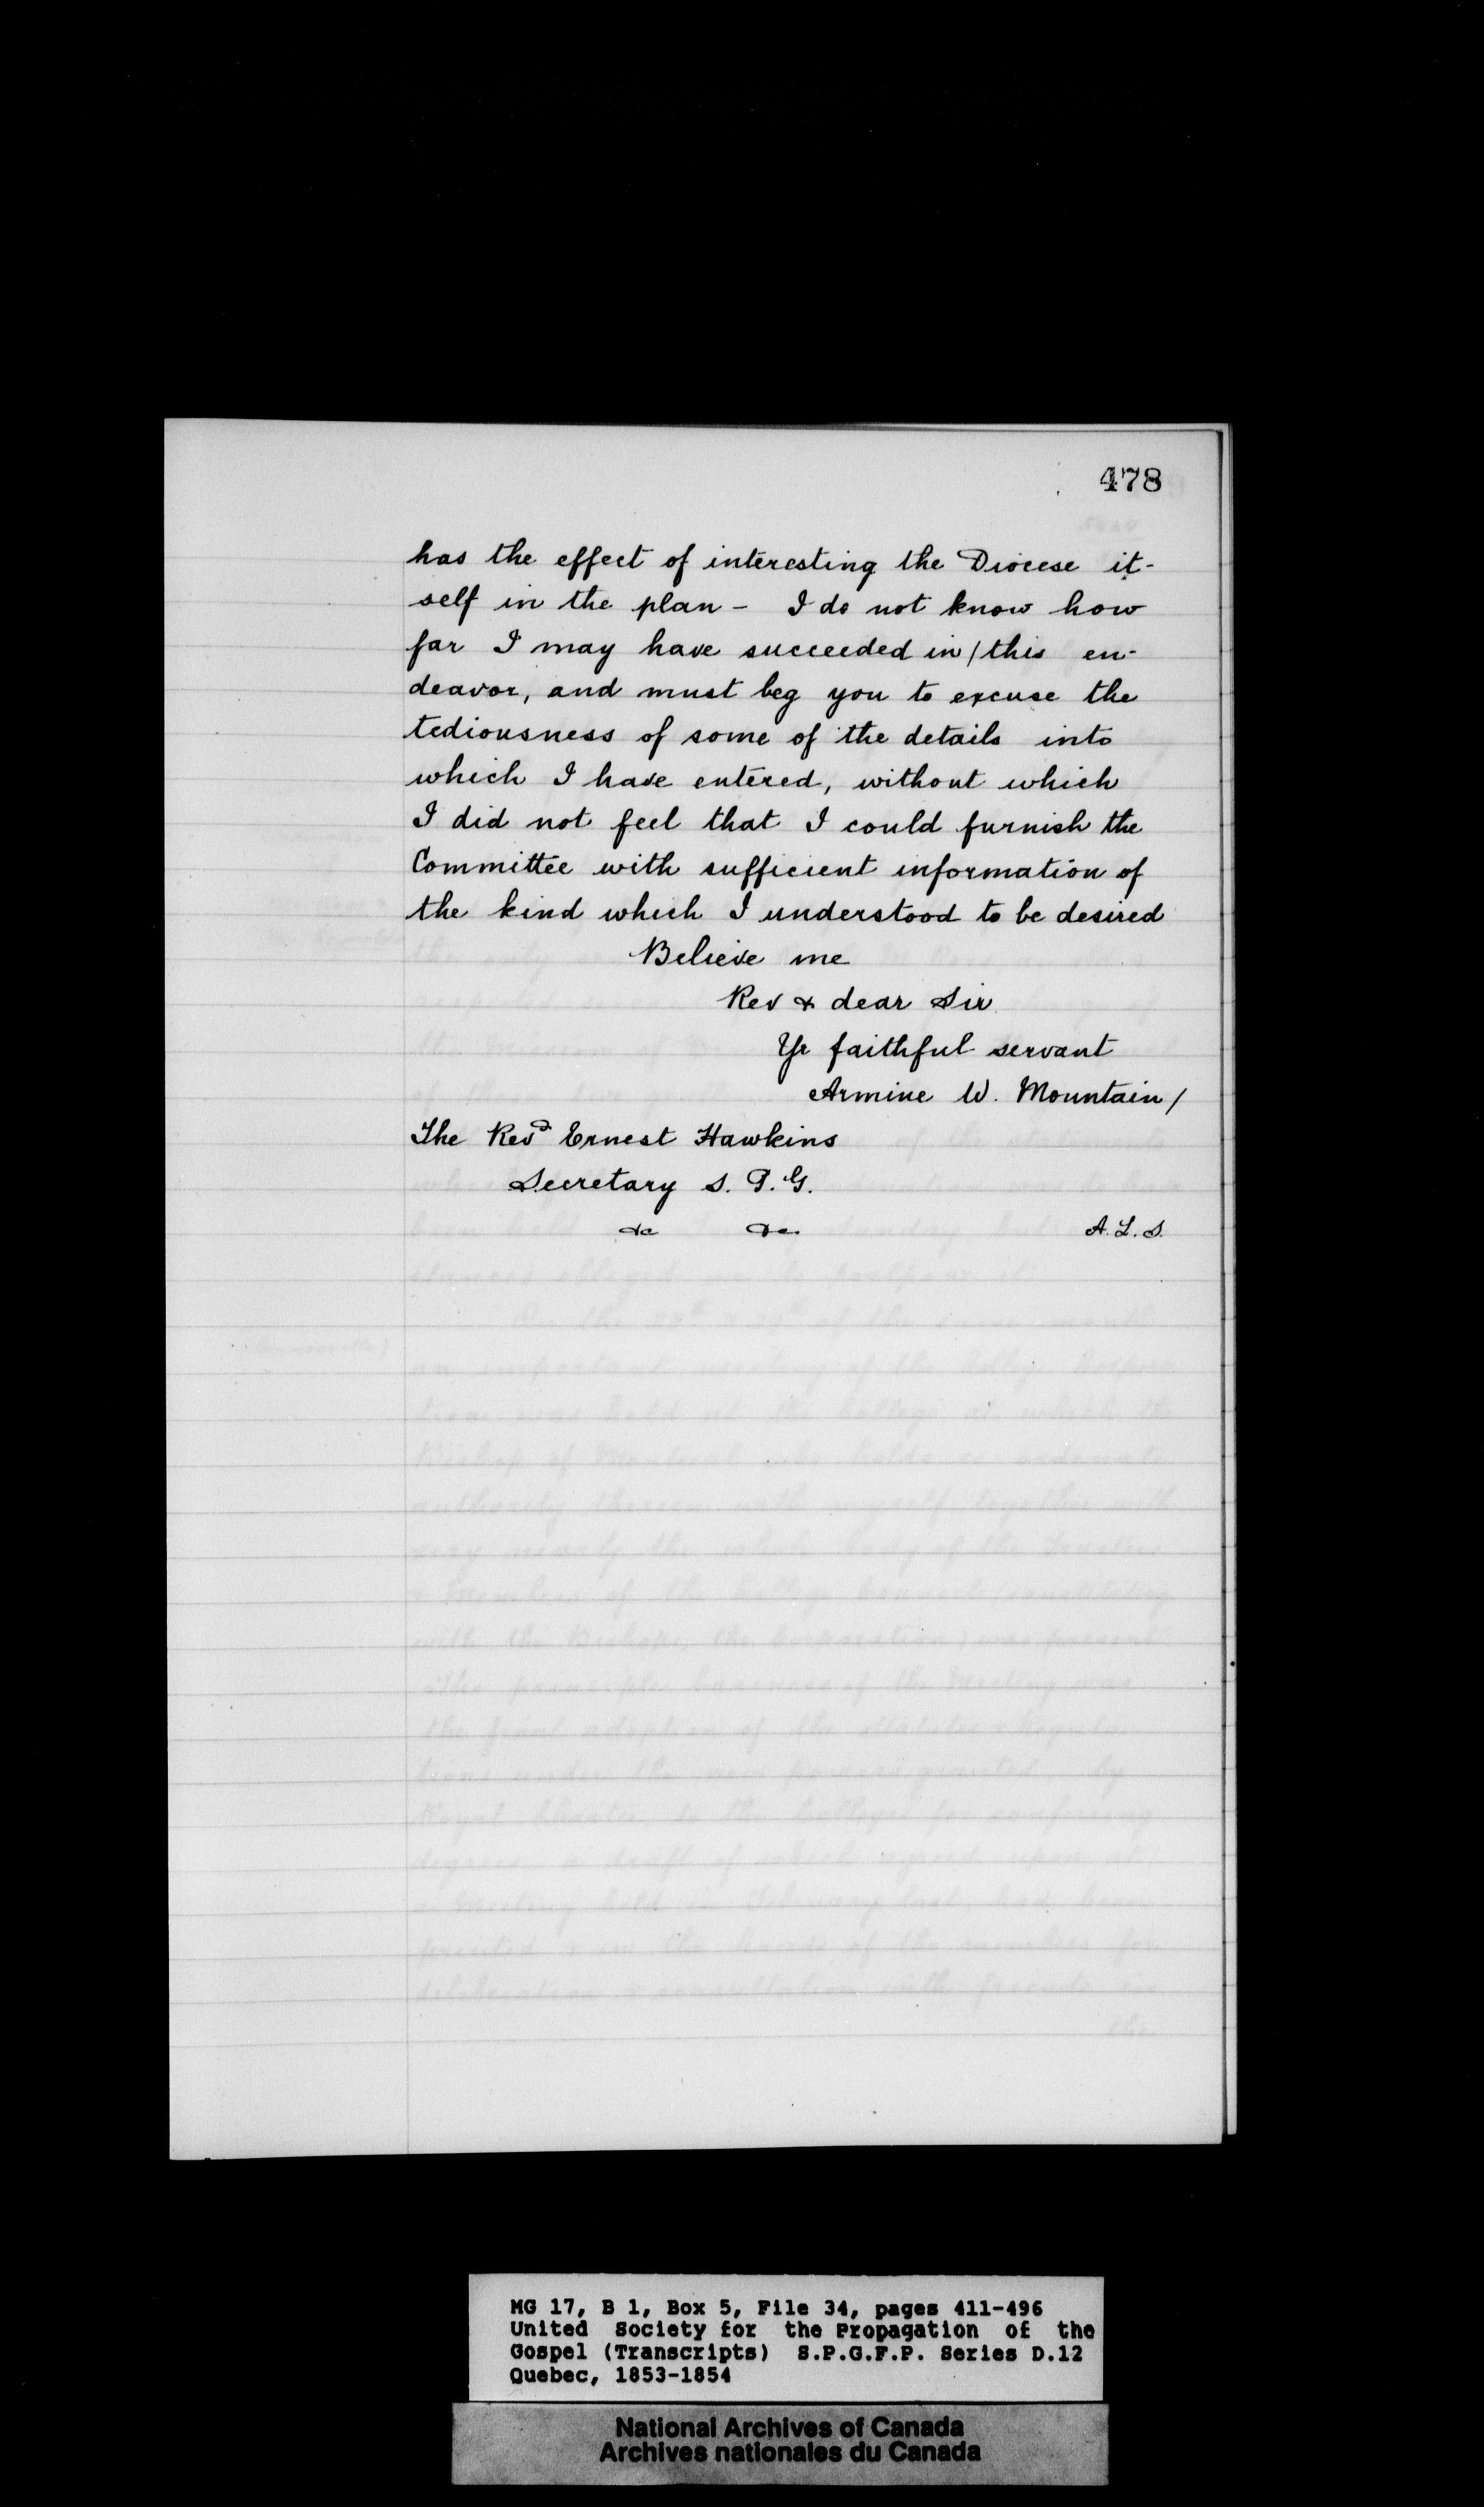 478
has the effect of interesting the Diocese it-
self in the plan - I do not know how
far I may have succeeded in / this en-
deavor, and must beg you to excuse the
tediousness of some of the details into
which I have entered, without which
I did not feel that I could furnish the
Committee with sufficient information of
the kind which I understood to be desired
Believe me
Rev & dear Sir
Yr faithful servant
Armine W. Mountain /
The Revd Ernest Hawkins
Secretary S. P. G.
&c &c.
A. L. S.
MG 17, B 1, Box 5, File 34, pages 411-496
United Society for the Propagation of the
Gospel (Transcripts) S.P.G.F.P. Series D.12
Quebec, 1853-1854
National Archives of Canada
Archives nationales du Canada